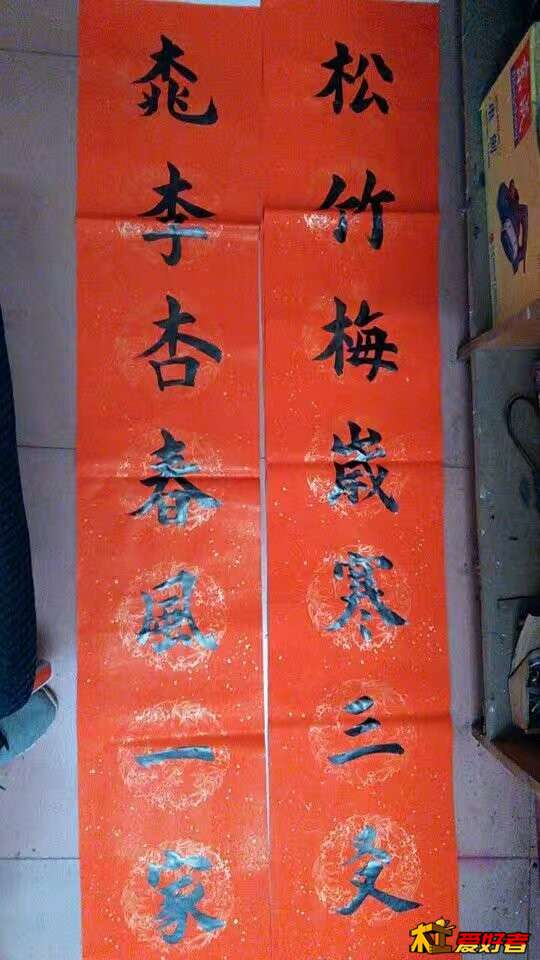 松竹梅歲寒三友
桃李杏春風一家
木工爱好者